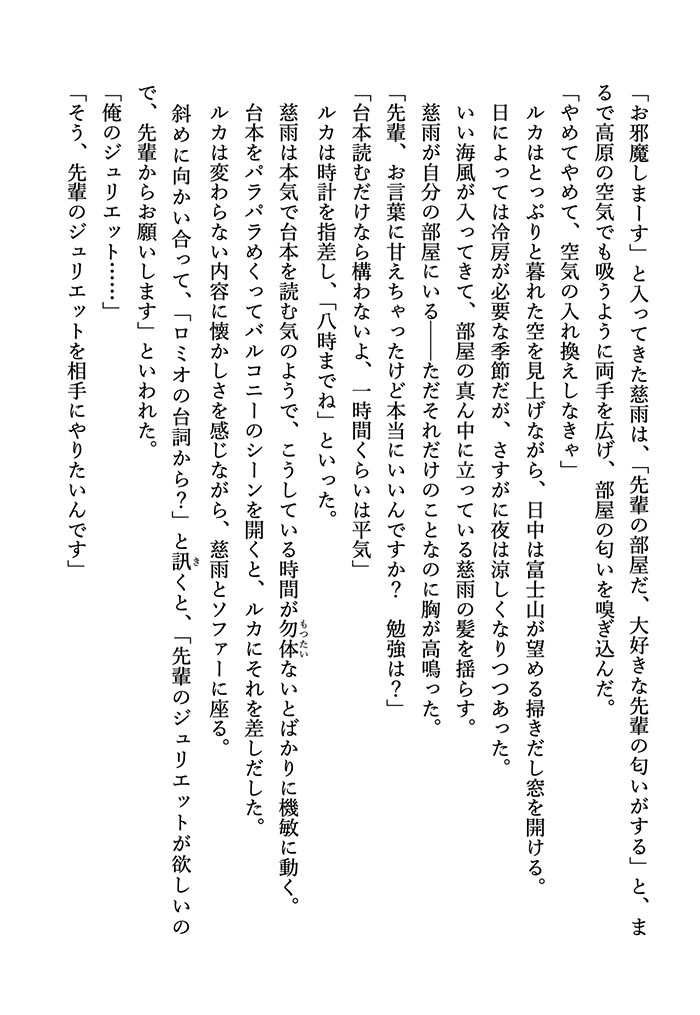 「お邪魔しまーす」と入ってきた慈雨は、「先輩の部屋だ、大好きな先輩の匂いがする」と、ま
るで高原の空気でも吸うように両手を広げ、部屋の匂いを嗅ぎ込んだ。
「やめてやめて、空気の入れ換えしなきゃ」
　ルカはとっぷりと暮れた空を見上げながら、日中は富士山が望める掃きだし窓を開ける。
　日によっては冷房が必要な季節だが、さすがに夜は涼しくなりつつあった。
　いい海風が入ってきて、部屋の真ん中に立っている慈雨の髪を揺らす。
　慈雨が自分の部屋にいる――ただそれだけのことなのに胸が高鳴った。
「先輩、お言葉に甘えちゃったけど本当にいいんですか？　勉強は？」
「台本読むだけなら構わないよ、一時間くらいは平気」
　ルカは時計を指差し、「八時までね」といった。
　慈雨は本気で台本を読む気のようで、こうしている時間が勿体ないとばかりに機敏に動く。
もつたい
　台本をパラパラめくってバルコニーのシーンを開くと、ルカにそれを差しだした。
　ルカは変わらない内容に懐かしさを感じながら、慈雨とソファーに座る。
　斜めに向かい合って、「ロミオの台詞から？」と訊くと、「先輩のジュリエットが欲しいの
き
で、先輩からお願いします」といわれた。
「俺のジュリエット……」
「そう、先輩のジュリエットを相手にやりたいんです」